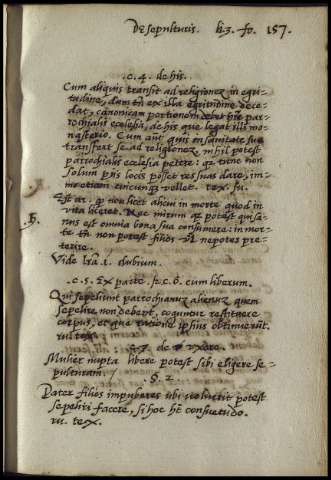 De sepulturis. li.3. fo. 157.
.c. 4. de his.
Cum aliquis transit ad religionem in egri-
tudine, dum tn̄ ex illa egritudine dece-
dat, canonicam portionem debet pro par-
rochialis ecclesia, de his que legat illi mo-
nasterio. Cum aut̄ quis in sanitate sua
transfert se ad religionem, nihil potest
parrochialis ecclesia petere: qz tunc non
solum piis locis posset res suas dare, im-
mo etiam cuicunqz vellet. tex. hic.
Est ar. qp non licet alicui in morte quod in
vita liceret. Nec mirum qz potest qui sa-
nus est omnia bona sua consumere: in mor-
te tn̄ non potest filios vl nepotes pre-
terire.
Vide lr̄a. 1. dubium.
.c. 5. Ex parte. et .c. 6. cum liberum.
Qui sepeliunt parrochianum alienum quem
sepelire non debent, coguntur restituere
corpus, et que ratione ipsius obtinuerūt.
.c. 7. de uxore.
Mulier nupta libere potest sibi eligere se-
pulturam.
§. 2.
Pater filios impuberes ubi voluerit potest
sepeliri facere, si hoc ht̄ consuetudo.
tex.